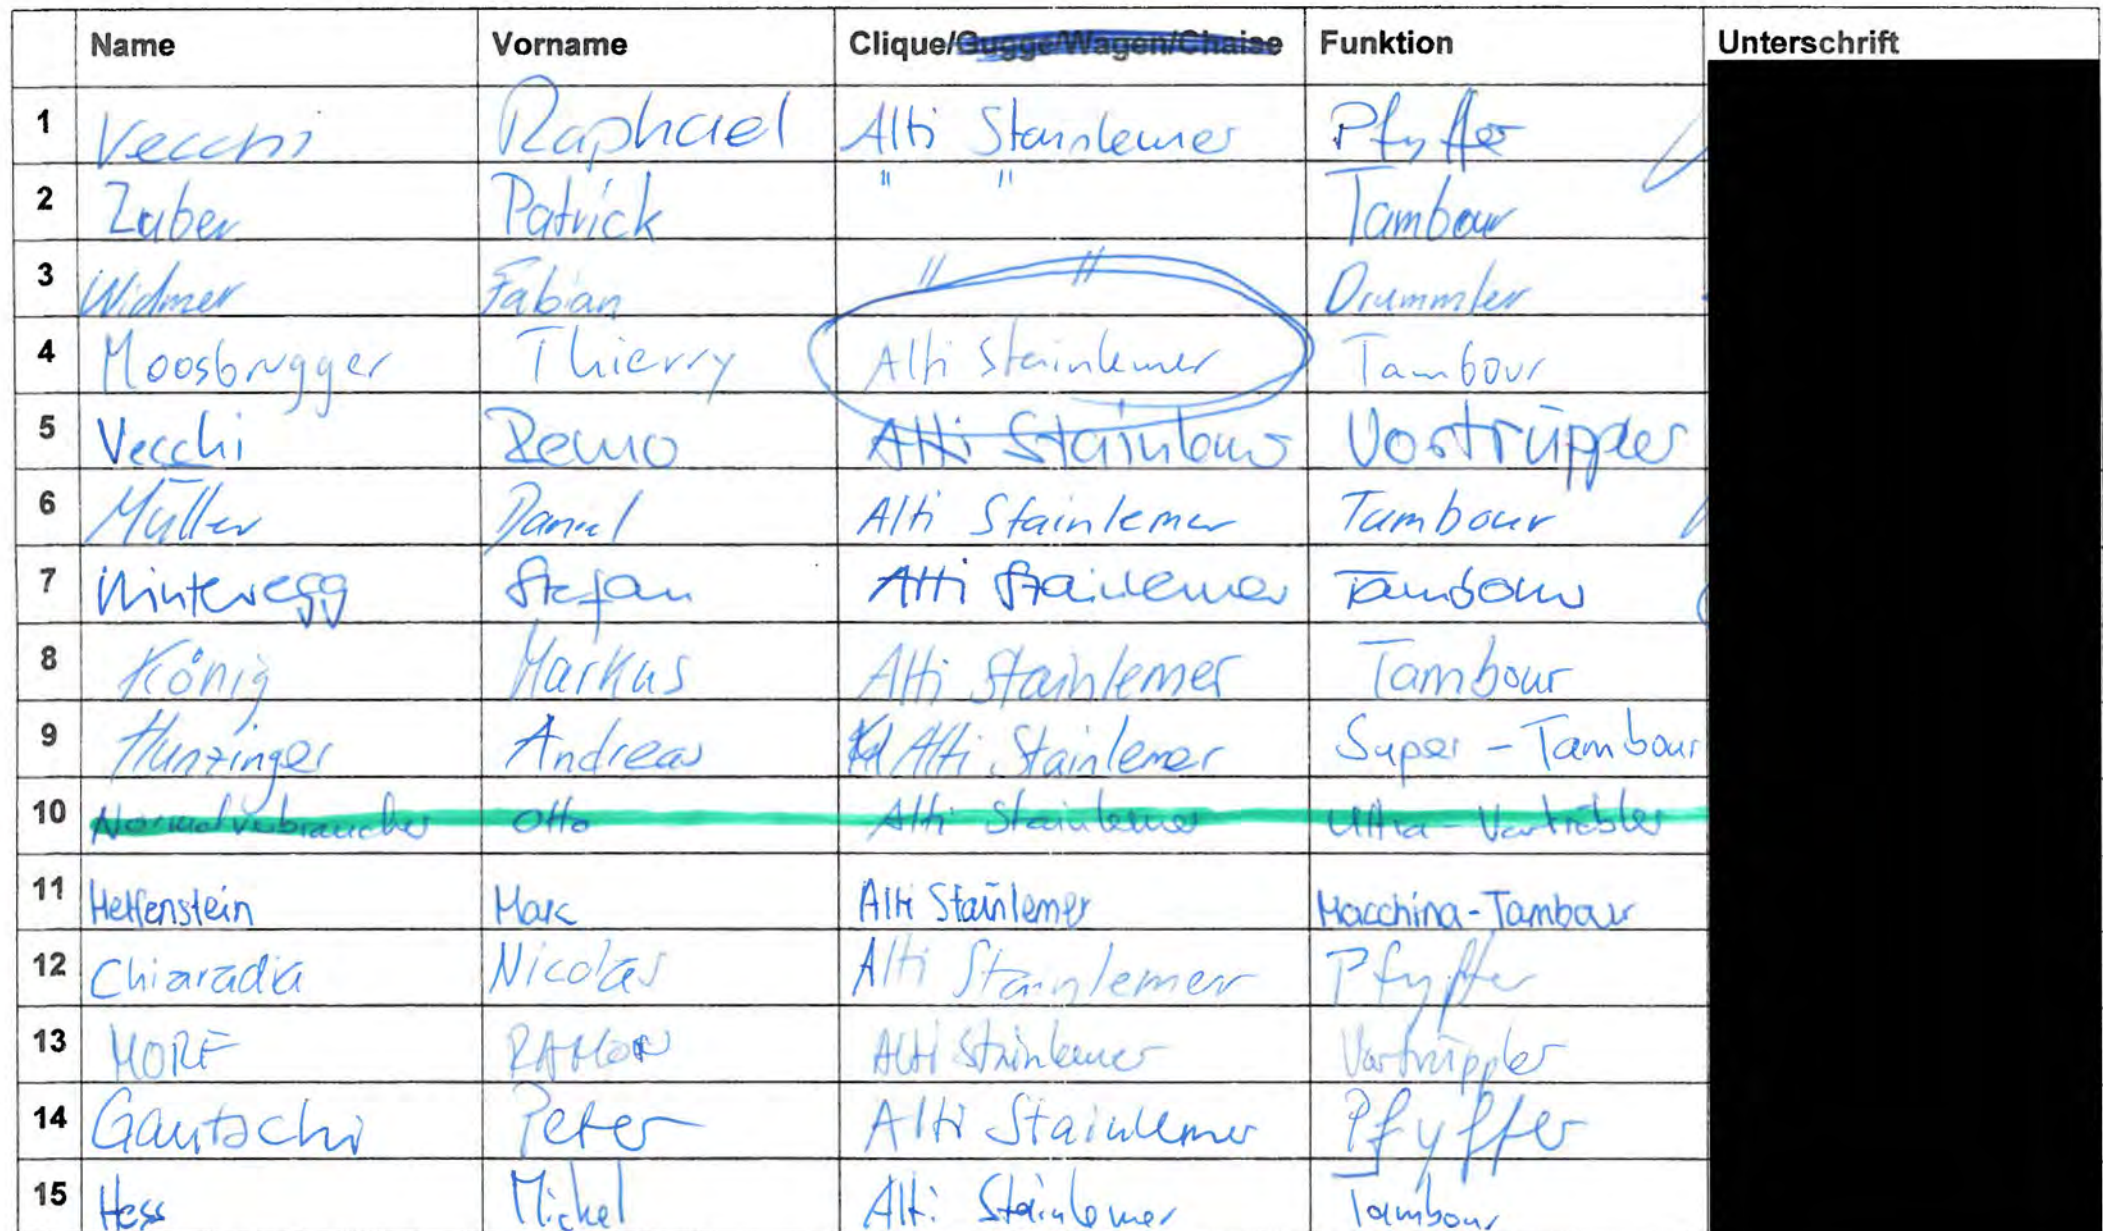 Name Vorname Clique/Gugge/Wagen/Chaise Funktion Unterschrift
1 Vecchi Raphael Alti Stainlemer Pfyffer
2 Zuber Patrick " " Tambour
3 Widmer Fabian " " Drummler
4 Moosbrugger Thierry Alti Stainlemer Tambour
5 Vecchi Remo Alti Stainlemer Vorträppler
6 Müller Daniel Alti Stainlemer Tambour
7 Winteregg Stefan Alti Stainlemer Tambour
8 König Markus Alti Stainlemer Tambour
9 Hunzinger Andreas Alti Stainlemer Super-Tambour
10 Normalverbraucher Otto Alti Stainlemer Ultra-Vorträbler
11 Helfenstein Marc Alti Stainlemer Macchina-Tambour
12 Chiaradia Nicolas Alti Stainlemer Pfyffer
13 MORE RAMON Alti Stainlemer Vortrüppler
14 Gautschi Peter Alti Stainlemer Pfyffer
15 Hess Michel Alti Stainlemer Tambour